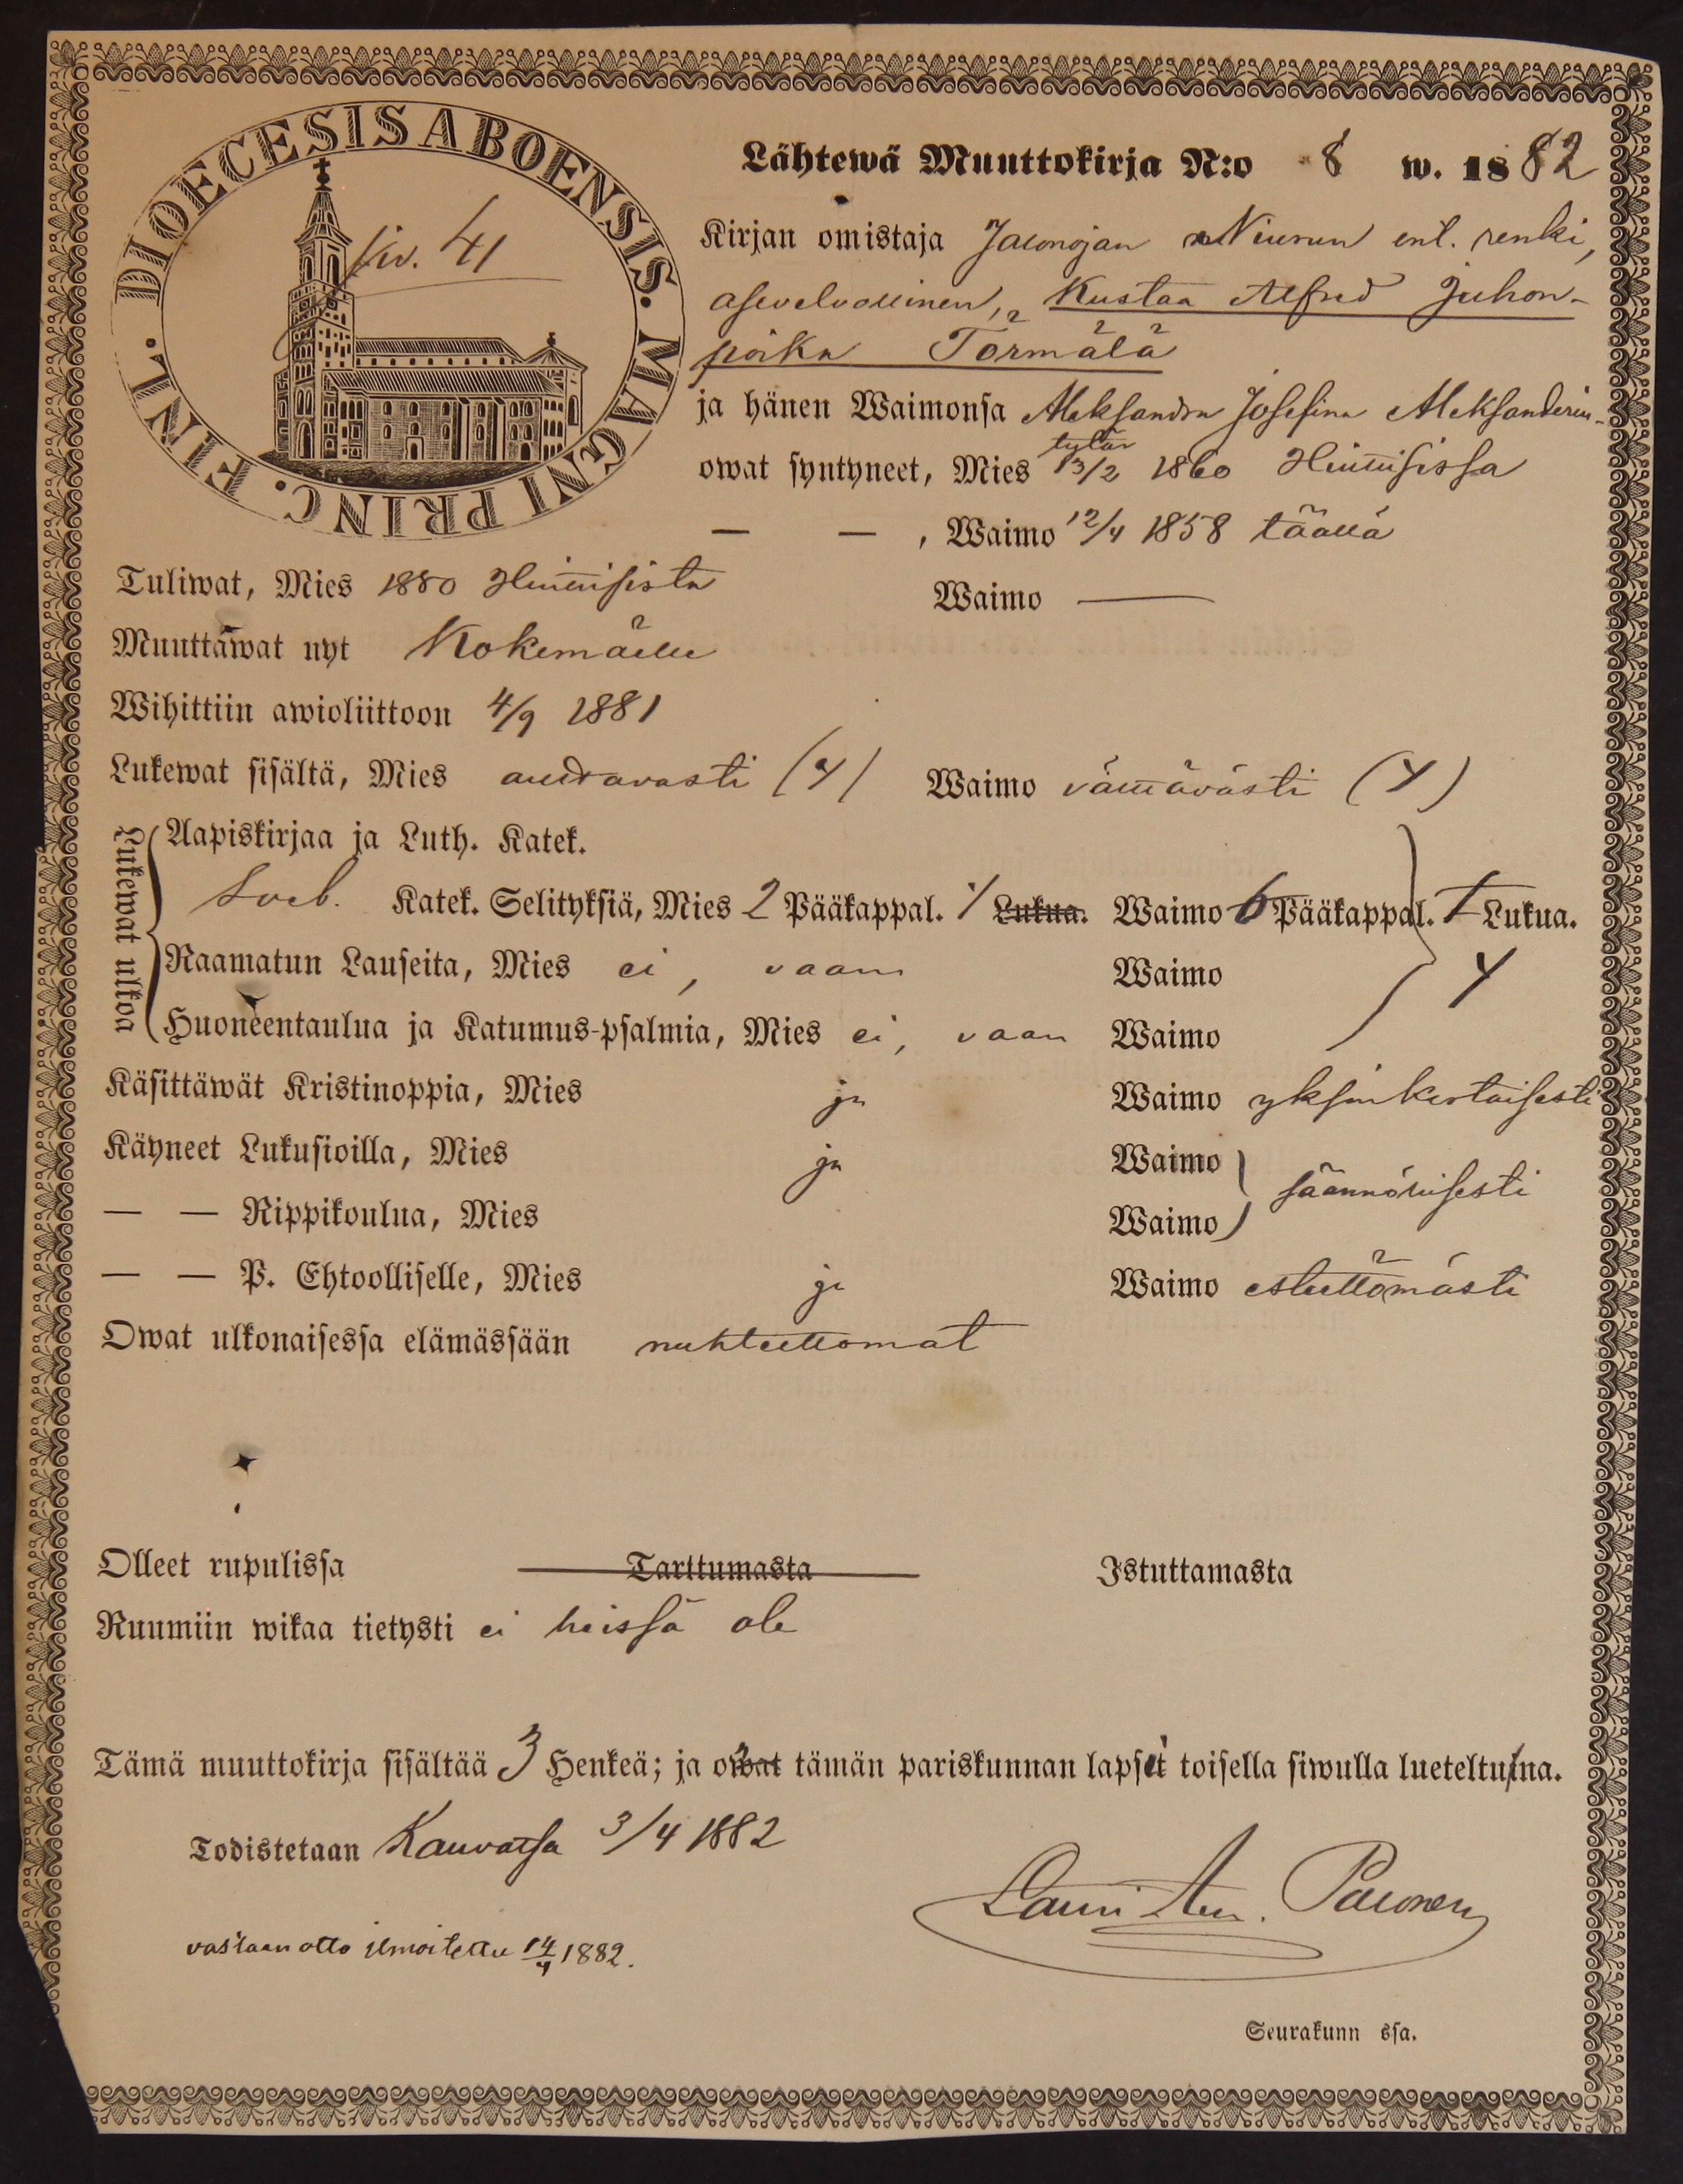 DIOECESIS ABOENSIS. MAGNI PRINC. FINL.
Siv. 41
Lähtewä Muuttokirja N:o 8 w. 1882
Kirjan omistaja ent. renki,
asevelvollinen, Kustaa Alfred Juhon-
poika Törmälä
ja hänen Waimonsa Aleksandra Josefina Aleksanderin-
tytär
owat syntyneet, Mies 13/2 1860
— — , Waimo 12/4 1858 täällä
Tuliwat, Mies 1880 Waimo —
Muuttawat nyt Kokemäelle
Wihittiin awioliittoon 4/9 1881
Lukewat sisältä, Mies auttavasti (4) Waimo välttävästi (4)
Lukewat ulkoa
Aapiskirjaa ja Luth. Katek.
Sveb. Katek. Selityksiä, Mies 2 Pääkappal. 1 Lukua. Waimo 6 Pääkappal. 1 Lukua.
Raamatun Lauseita, Mies ei, vaan Waimo 4
Huoneentaulua ja Katumus-psalmia, Mies ei, vaan Waimo
Käsittäwät Kristinoppia, Mies ja Waimo yksinkertaisesti
Käyneet Lukusioilla, Mies ja Waimo säännöllisesti
— — Rippikoulua, Mies Waimo
— — P. Ehtoolliselle, Mies ja Waimo esteettömästi
Owat ulkonaisessa elämässään nuhteettomat
Olleet rupulissa Tarttumasta Istuttamasta
Ruumiin wikaa tietysti ei heissä ole
Tämä muuttokirja sisältää 3 Henkeä; ja owat tämän pariskunnan lapset toisella siwulla lueteltuina.
Todistetaan Kauvatsa 3/4 1882
Lauri Paronen
vastaan otto ilmoitettu 14/4 1882.
Seurakunn ssa.